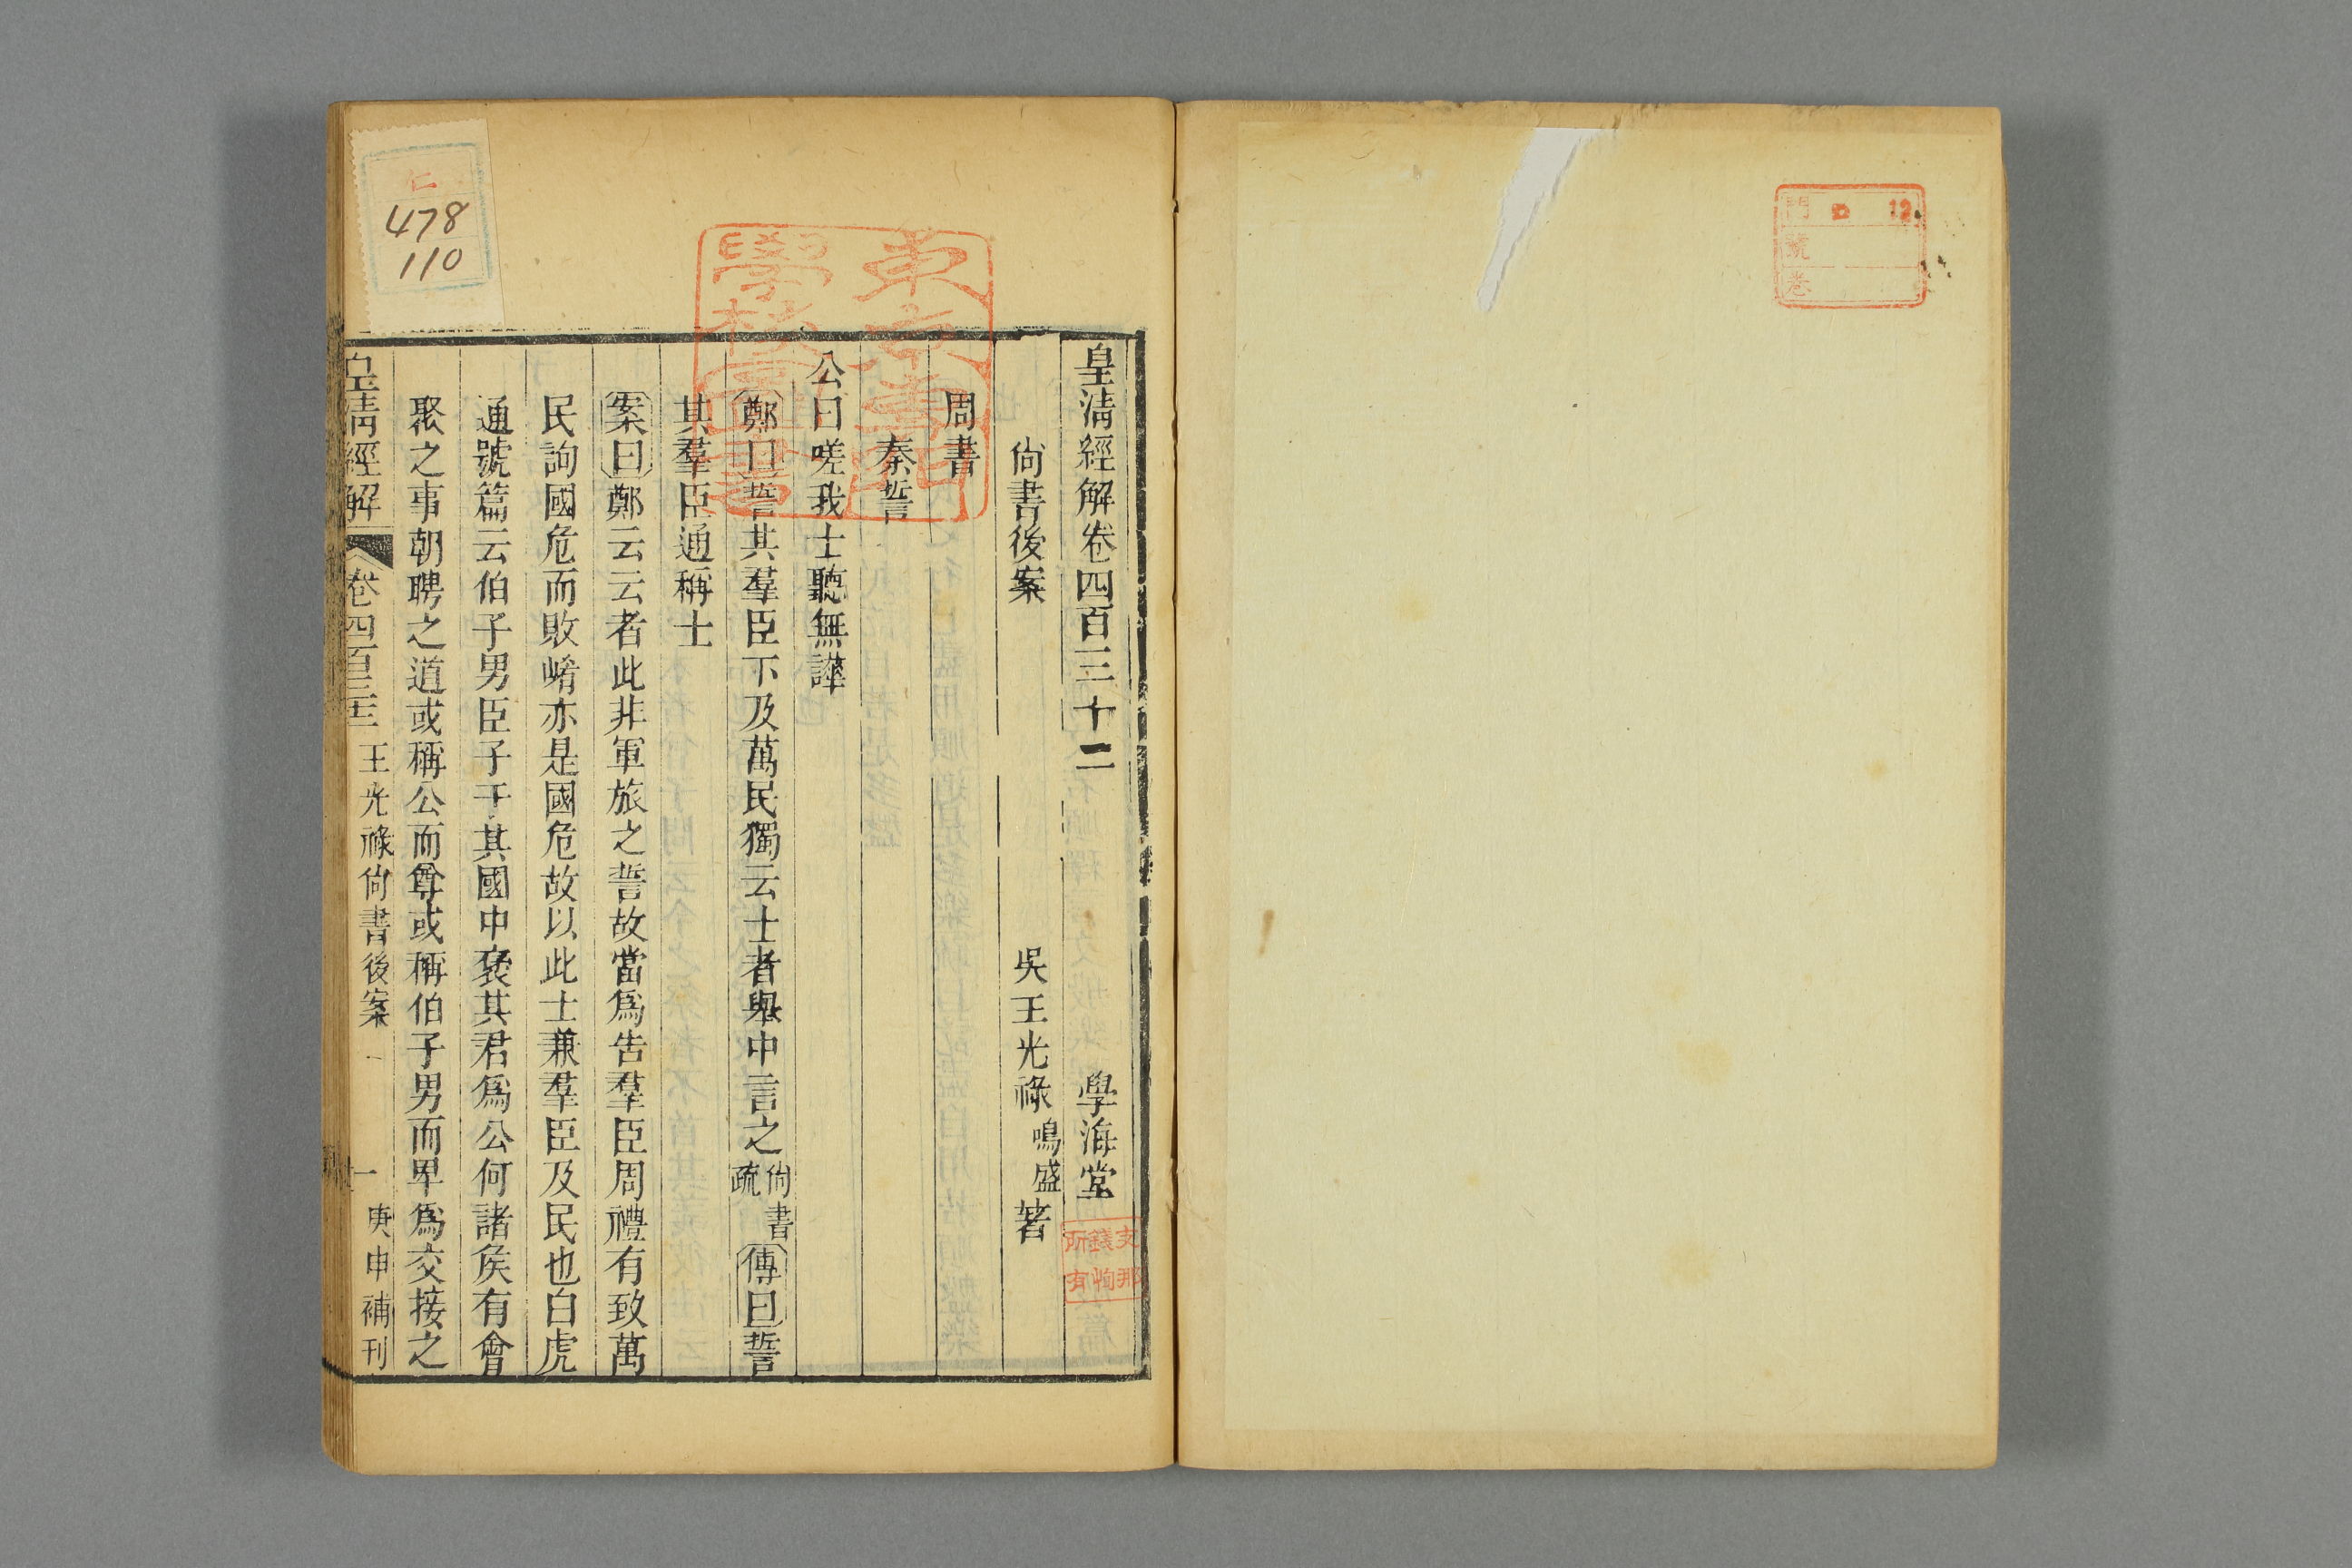 門 12
號
卷
皇清經解卷四百三十二 學海堂
尚書後案 吳王光祿鳴盛著
周書
秦誓
公曰嗟我士聽無譁
鄭曰誓其羣臣下及萬民獨云士者舉中言之尚書疏傳曰誓
其羣臣通稱士
案曰鄭云云者此非軍旅之誓故當爲告羣臣周禮有致萬
民詢國危而敗崤亦是國危故以此士兼羣臣及民也白虎
通號篇云伯子男臣子于其國中襃其君爲公何諸矦有會
聚之事朝聘之道或稱公而尊或稱伯子男而卑爲交接之
皇清經解 卷四百三十二 王光祿尚書後案 一 庚申補刊
478
110
支那
錢恂
所有